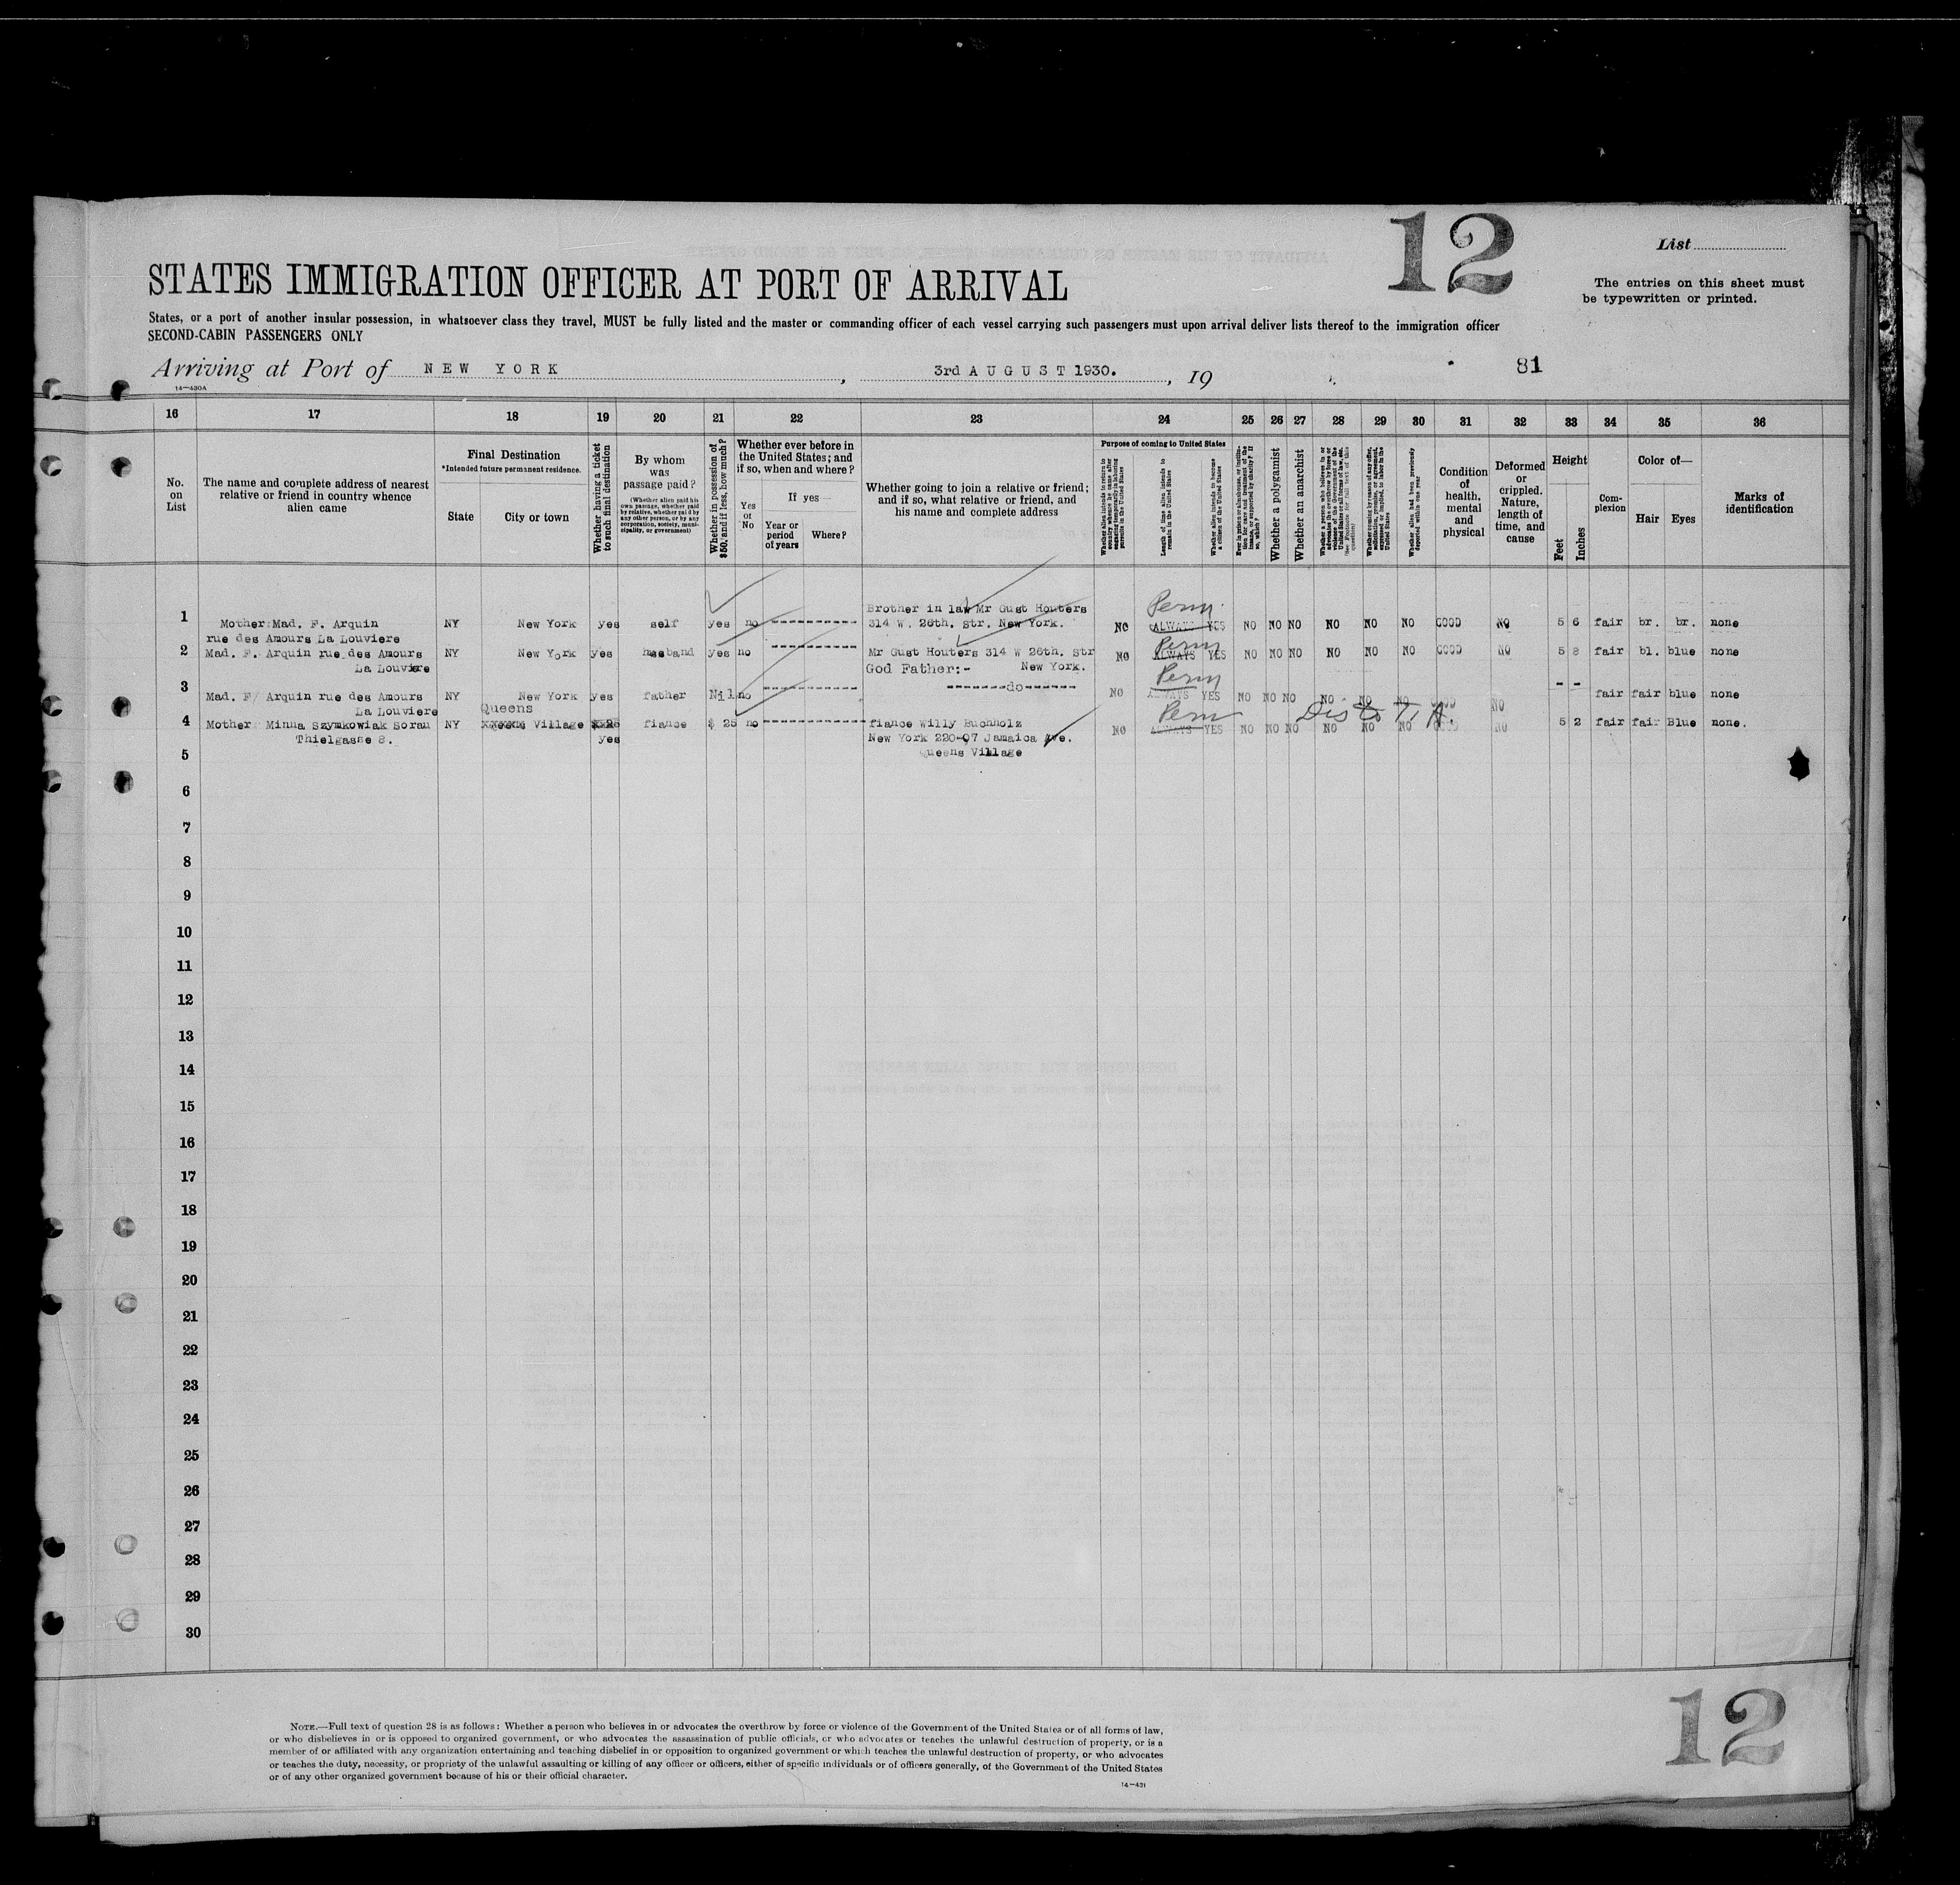 12
List
The entries on this sheet must
be typewritten or printed.
STATES IMMIGRATION OFFICER AT PORT OF ARRIVAL
States, or a port of another insular possession, in whatsoever class they travel, MUST be fully listed and the master or commanding officer of each vessel carrying such passengers must upon arrival deliver lists thereof to the immigration officer
SECOND-CABIN PASSENGERS ONLY
Arriving at Port of NEW YORK, 3rd AUGUST 1930., 19
81
14—430A
16 17 18 19 20 21 22 23 24 25 26 27 28 29 30 31 32 33 34 35 36
No.
on
List
The name and complete address of nearest
relative or friend in country whence
alien came
Final Destination
*Intended future permanent residence.
State
City or town
Whether having a ticket
to such final destination
By whom
was
passage paid?
(Whether alien paid his
own passage, whether paid
by relative, whether paid by
any other person, or by any
corporation, society, muni-
cipality, or government)
Whether in possession of
$50, and if less, how much?
Whether ever before in
the United States; and
if so, when and where?
Yes
or
No
If yes—
Year or
period
of years
Where?
Whether going to join a relative or friend;
and if so, what relative or friend, and
his name and complete address
Purpose of coming to United States
Whether alien intends to return to
country whence he came after
engaging temporarily in laboring
pursuits in the United States
Length of time alien intends to
remain in the United States
Whether alien intends to become
a citizen of the United States
Ever in prison or almshouse, or institu-
tion for care and treatment of the
insane, or supported by charity? If
so, which?
Whether a polygamist
Whether an anarchist
Whether a person who believes in or
advocates the overthrow by force or
violence of the Government of the
United States or all forms of law, etc.
(See Footnote for full text of this
question)
Whether coming by reason of any offer,
solicitation, promise, or agreement,
expressed or implied, to labor in the
United States
Whether alien had been previously
deported within one year
Condition
of
health,
mental
and
physical
Deformed
or
crippled.
Nature,
length of
time, and
cause
Height
Feet
Inches
Com-
plexion
Color of—
Hair
Eyes
Marks of
identification
Perm.
Brother in law Mr Gust Houters
1 Mother Mad. F. Arquin NY New York yes self yes no ----------- 314 W. 26th. Str. New York. NO ALWAYS YES NO NO NO NO NO NO GOOD NO 5 6 fair br. br. none
rue des Amours La Louviere
Perm
2 Mad. F. Arquin rue des Amours NY New York yes husband yes no ----------- Mr Gust Houters 314 W 26th. Str NO ALWAYS YES NO NO NO NO NO NO GOOD NO 5 8 fair bl. blue none
La Louvière
God Father:- New York.
Perm
3 Mad. F/ Arquin rue des Amours NY New York yes father Nil no ----------- -------do------ NO ALWAYS YES NO NO NO NO NO NO GOOD NO - - fair fair blue none
La Louviere
Queens
Perm
Dis to T. A.
4 Mother Minna Szymkowiak Sorau NY Village fiance $ 25 no ----------- fiance Willy Buchholz NO ALWAYS YES NO NO NO NO NO NO GOOD NO 5 2 fair fair Blue none.
Thielgasse 8. yes New York 220-07 Jamaica Ave.
Queens Village
5
6
7
8
9
10
11
12
13
14
15
16
17
18
19
20
21
22
23
24
25
26
27
28
29
30
NOTE.—Full text of question 28 is as follows: Whether a person who believes in or advocates the overthrow by force or violence of the Government of the United States or of all forms of law,
or who disbelieves in or is opposed to organized government, or who advocates the assassination of public officials, or who advocates or teaches the unlawful destruction of property, or is a
member of or affiliated with any organization entertaining and teaching disbelief in or opposition to organized government or which teaches the unlawful destruction of property, or who advocates
or teaches the duty, necessity, or propriety of the unlawful assaulting or killing of any officer or officers, either of specific individuals or of officers generally, of the Government of the United States
or of any other organized government because of his or their official character.
14—431
12